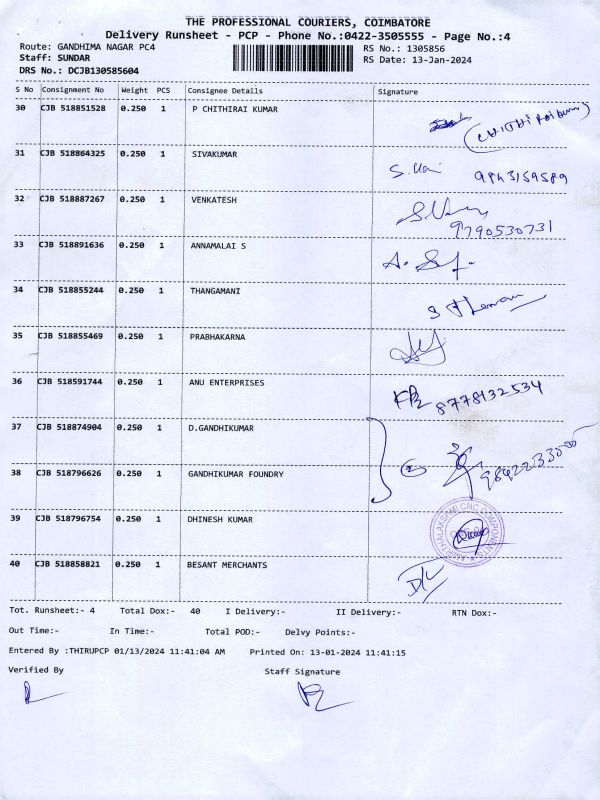 THE PROFESSIONAL COURIERS, COIMBATORE
Delivery Runsheet - PCP - Phone No.:0422-3505555 - Page No.:4
Route: GANDHIMA NAGAR PC4 RS No.: 1305856
Staff: SUNDAR RS Date: 13-Jan-2024
DRS No.: DCJB130585604
S No Consignment No Weight PCS Consignee Details Signature
30 CJB 518851528 0.250 1 P CHITHIRAI KUMAR
31 CJB 518864325 0.250 1 SIVAKUMAR
9843159589
32 CJB 518887267 0.250 1 VENKATESH
9790530731
33 CJB 518891636 0.250 1 ANNAMALAI S
34 CJB 518855244 0.250 1 THANGAMANI
35 CJB 518855469 0.250 1 PRABHAKARNA
36 CJB 518591744 0.250 1 ANU ENTERPRISES
8778132534
37 CJB 518874904 0.250 1 D.GANDHIKUMAR
38 CJB 518796626 0.250 1 GANDHIKUMAR FOUNDRY
2
39 CJB 518796754 0.250 1 DHINESH KUMAR
CNC COMPONENTS
40 CJB 518858821 0.250 1 BESANT MERCHANTS
Tot. Runsheet:- 4 Total Dox:- 40 I Delivery:- II Delivery:- RTN Dox:-
Out Time:- In Time:- Total POD:- Delvy Points:-
Entered By :THIRUPCP 01/13/2024 11:41:04 AM Printed On: 13-01-2024 11:41:15
Verified By Staff Signature